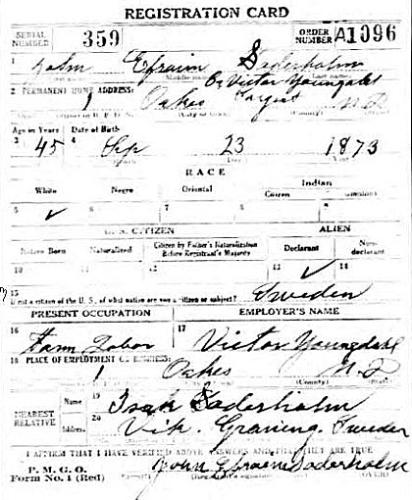 REGISTRATION CARD
SERIAL NUMBER 359 ORDER NUMBER A1096
1 John Efraim Soderholm
First name Middle name Last name
2 PERMANENT HOME ADDRESS: C/o Victor Youngdahl
1 Oakes Sargent N.D.
Age in Years Date of Birth
3 45 4 Sep 23 1873
RACE
White Negro Oriental Indian
Citizen
5 ✓ 6 7 8
U. S. CITIZEN ALIEN
Native Born Naturalized Citizen by Father's Naturalization Before Registrant's Majority Declarant Non-declarant
10 11 12 13 ✓ 14
15 If not a citizen of the U. S., of what nation are you a citizen or subject? Sweden
PRESENT OCCUPATION EMPLOYER'S NAME
16 Farm Labor 17 Victor Youngdahl
18 PLACE OF EMPLOYMENT OR BUSINESS:
1 Oakes N.D
NEAREST RELATIVE Name 19 Soderholm
Address 20 Sweden
I AFFIRM THAT I HAVE VERIFIED ABOVE ANSWERS AND THAT THEY ARE TRUE
P. M. G. O.
Form No. 1 (Red) John Efraim Soderholm